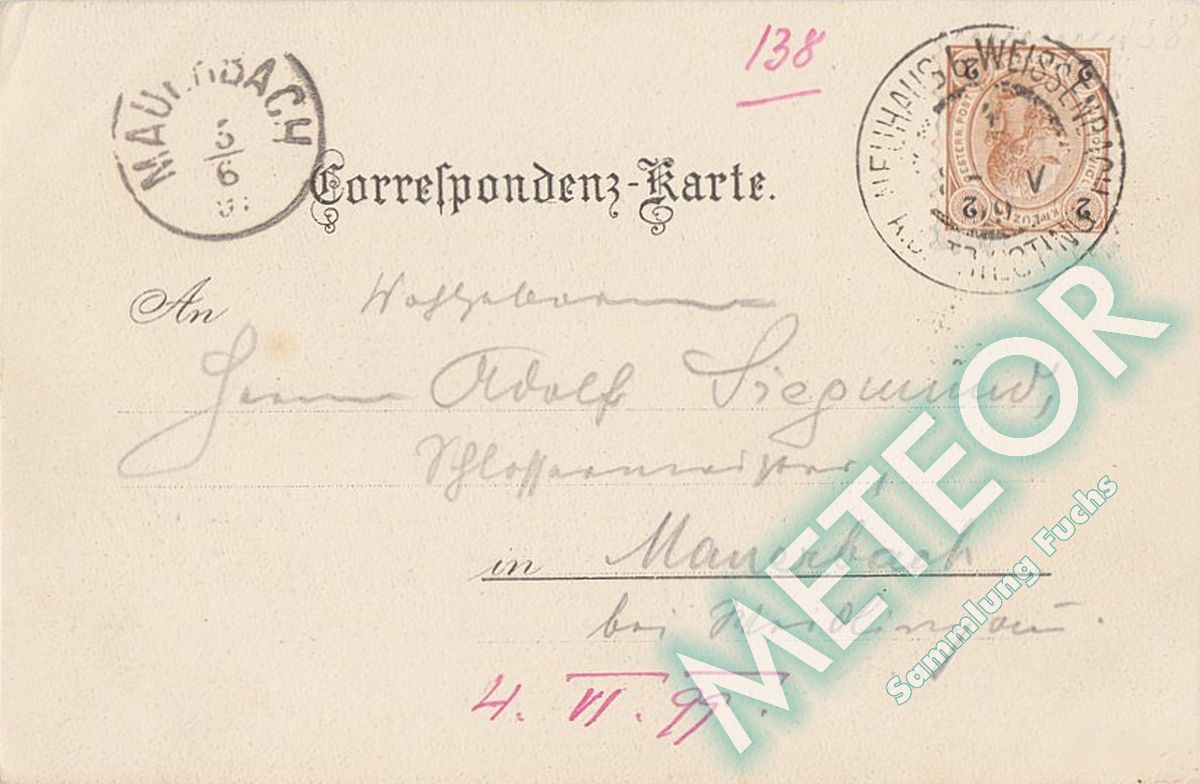 138.
MAUERBACH
5/6
Correspondenz-Karte.
NEUHAUS b. WEISSENBACH
TRIESTING
2 2
KREUZER
2 2
An Wohlgeboren
Herrn Adolf Siegmund,
Schlossermeister,
in Mauerbach
bei
4. VI. 99.
METEOR
Sammlung Fuchs